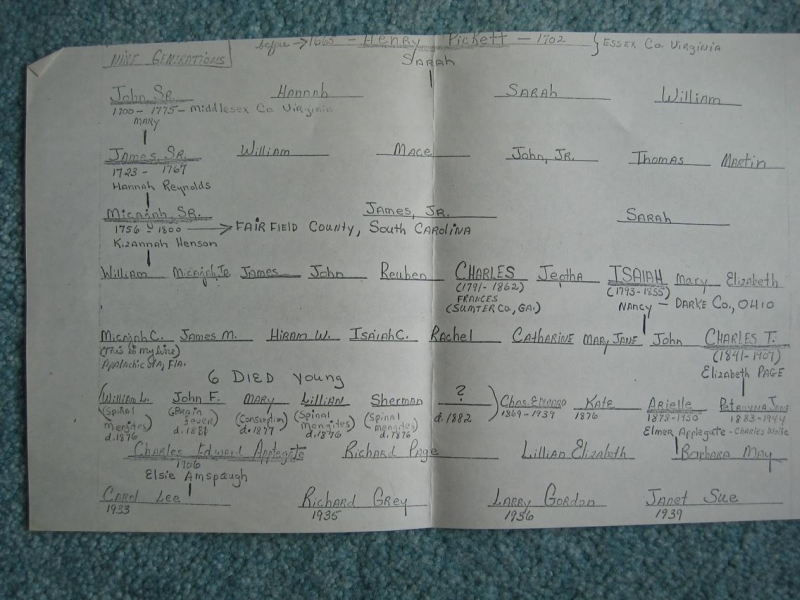 NINE GENERATIONS before → 1665 - Henry Pickett - 1702 } ESSEX CO. VIRGINIA
SARAH
John SR. Hannah SARAH William
1700 - 1775 - Middlesex Co Virginia
MARY
James SR. William MACE John, JR. Thomas MARTIN
1723 - 1767
Hannah Reynolds
Micajah SR. James, JR. SARAH
1756 1800 → FAIRFIELD COUNTY, SOUTH CAROLINA
KizAnnah Henson
William Micajah Jr James John Reuben CHARLES Jeptha ISAIAH Mary Elizabeth
(1791-1862) (1793-1855)
FRANCES NANCY - DARKE CO., OHIO
(SUMTER CO, GA.)
Micajah C. JAMES M. HIRAM W. ISAIAH C. Rachel CATHARINE MARY JANE John CHARLES T.
(This is my line) (1841-1907)
Appalachicola, FLA. Elizabeth PAGE
6 DIED YOUNG
William L. John F. MARY LILLIAN Sherman ? Chas. Elmongo KATE Arielle
(Spinal (Brain (Consumption) (Spinal (Spinal d. 1882 1869-1939 1876 1878-1950 1883-1944
mengites fever) d. 1877 mengites) mengites)
d. 1876 d. 1881 d. 1876 d. 1876 Elmer Applegate - Charles Wolfe
Charles Edward Applegate Richard Page Lillian Elizabeth Barbara May
1906
Elsie Amspaugh
CAROL LEE Richard Grey LARRY GORDON JANET SUE
1933 1935 1936 1939